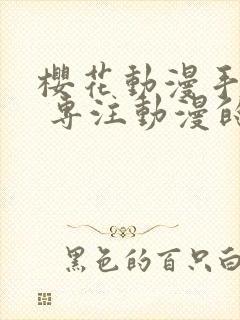 櫻花動漫手
專注動漫的
黑色的百只白